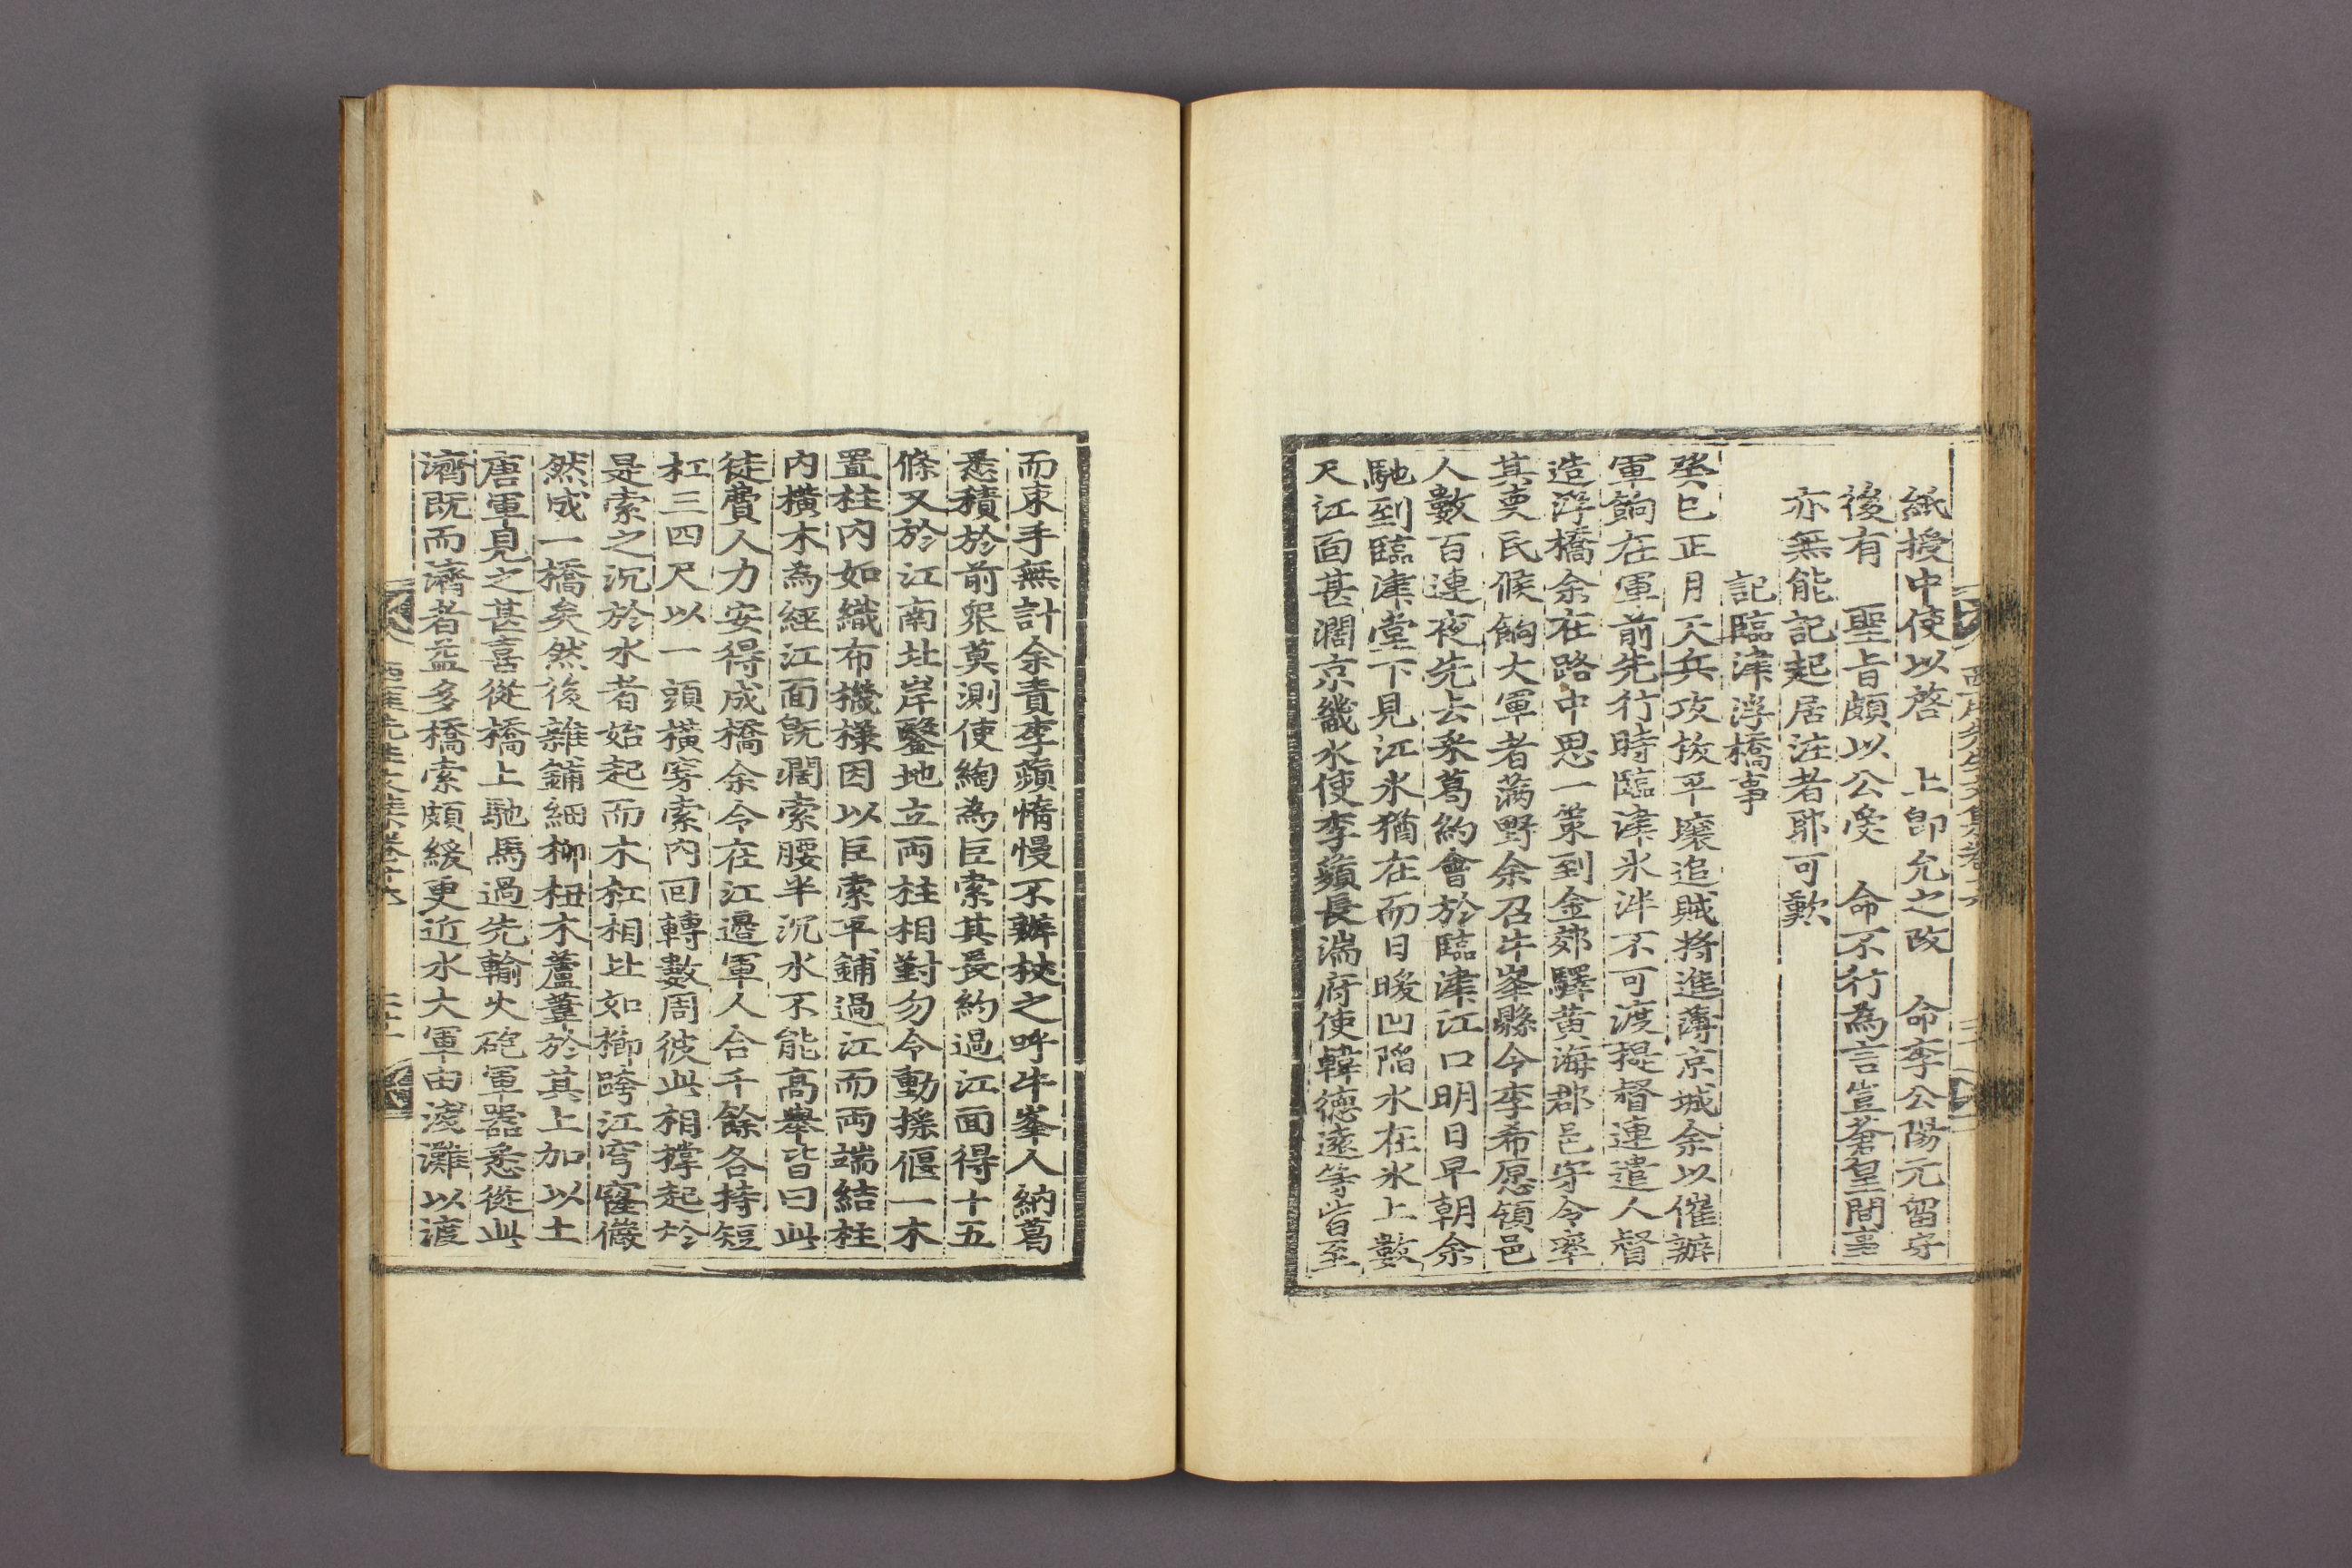 紙授中使以啓　上即允之改　命李公陽元留守
後有　聖旨頗以公受　命不行為言豈蒼皇間事
亦無能記起居注者耶可歎
記臨津浮橋事
癸巳正月天兵攻拔平壤追賊將進薄京城余以催辦
軍餉在軍前先行時臨津氷泮不可渡提督連遣人督
造浮橋余在路中思一策到金郊驛黃海郡邑守令率
其吏民候餉大軍者滿野余召牛峯縣令李希愿領邑
人數百連夜先去采葛約會於臨津江口明日早朝余
馳到臨津堂下見江氷猶在而日暖凹陷水在氷上數
尺江面甚濶京畿水使李蘋長湍府使韓德遠等皆至
而束手無計余責李蘋惰慢不辦杖之呼牛峯人納葛
悉積於前衆莫測使綯為巨索其長約過江面得十五
條又於江南北岸鑿地立兩柱相對勿令動搖偃一木
置柱內如織布機㨾因以巨索平鋪過江而兩端結柱
內橫木為經江面旣濶索腰半沉水不能高擧皆曰此
徒費人力安得成橋余令在江邊軍人合千餘各持短
杠三四尺以一頭橫穿索內回轉數周彼此相撑起於
是索之沉於水者始起而木杠相比如櫛跨江穹窿儼
然成一橋矣然後雜鋪細柳杻木蘆葦於其上加以土
唐軍見之甚喜從橋上馳馬過先輸火砲軍器悉從此
濟旣而濟者益多橋索頗緩更近水大軍由淺灘以渡
西厓先生文集卷十六